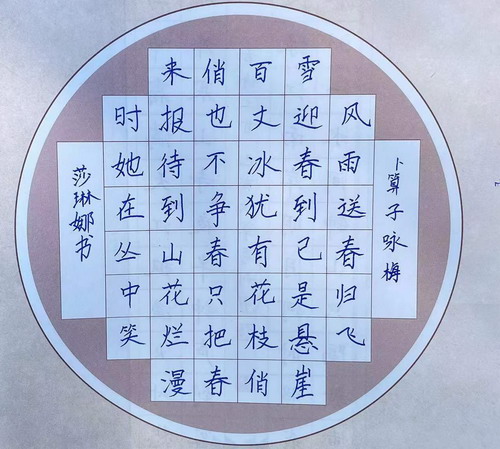 卜算子咏梅
风雨送春归飞
雪迎春到已是悬崖
百丈冰犹有花枝俏
俏也不争春只把春
来报待到山花烂漫
时她在丛中笑
莎琳娜书